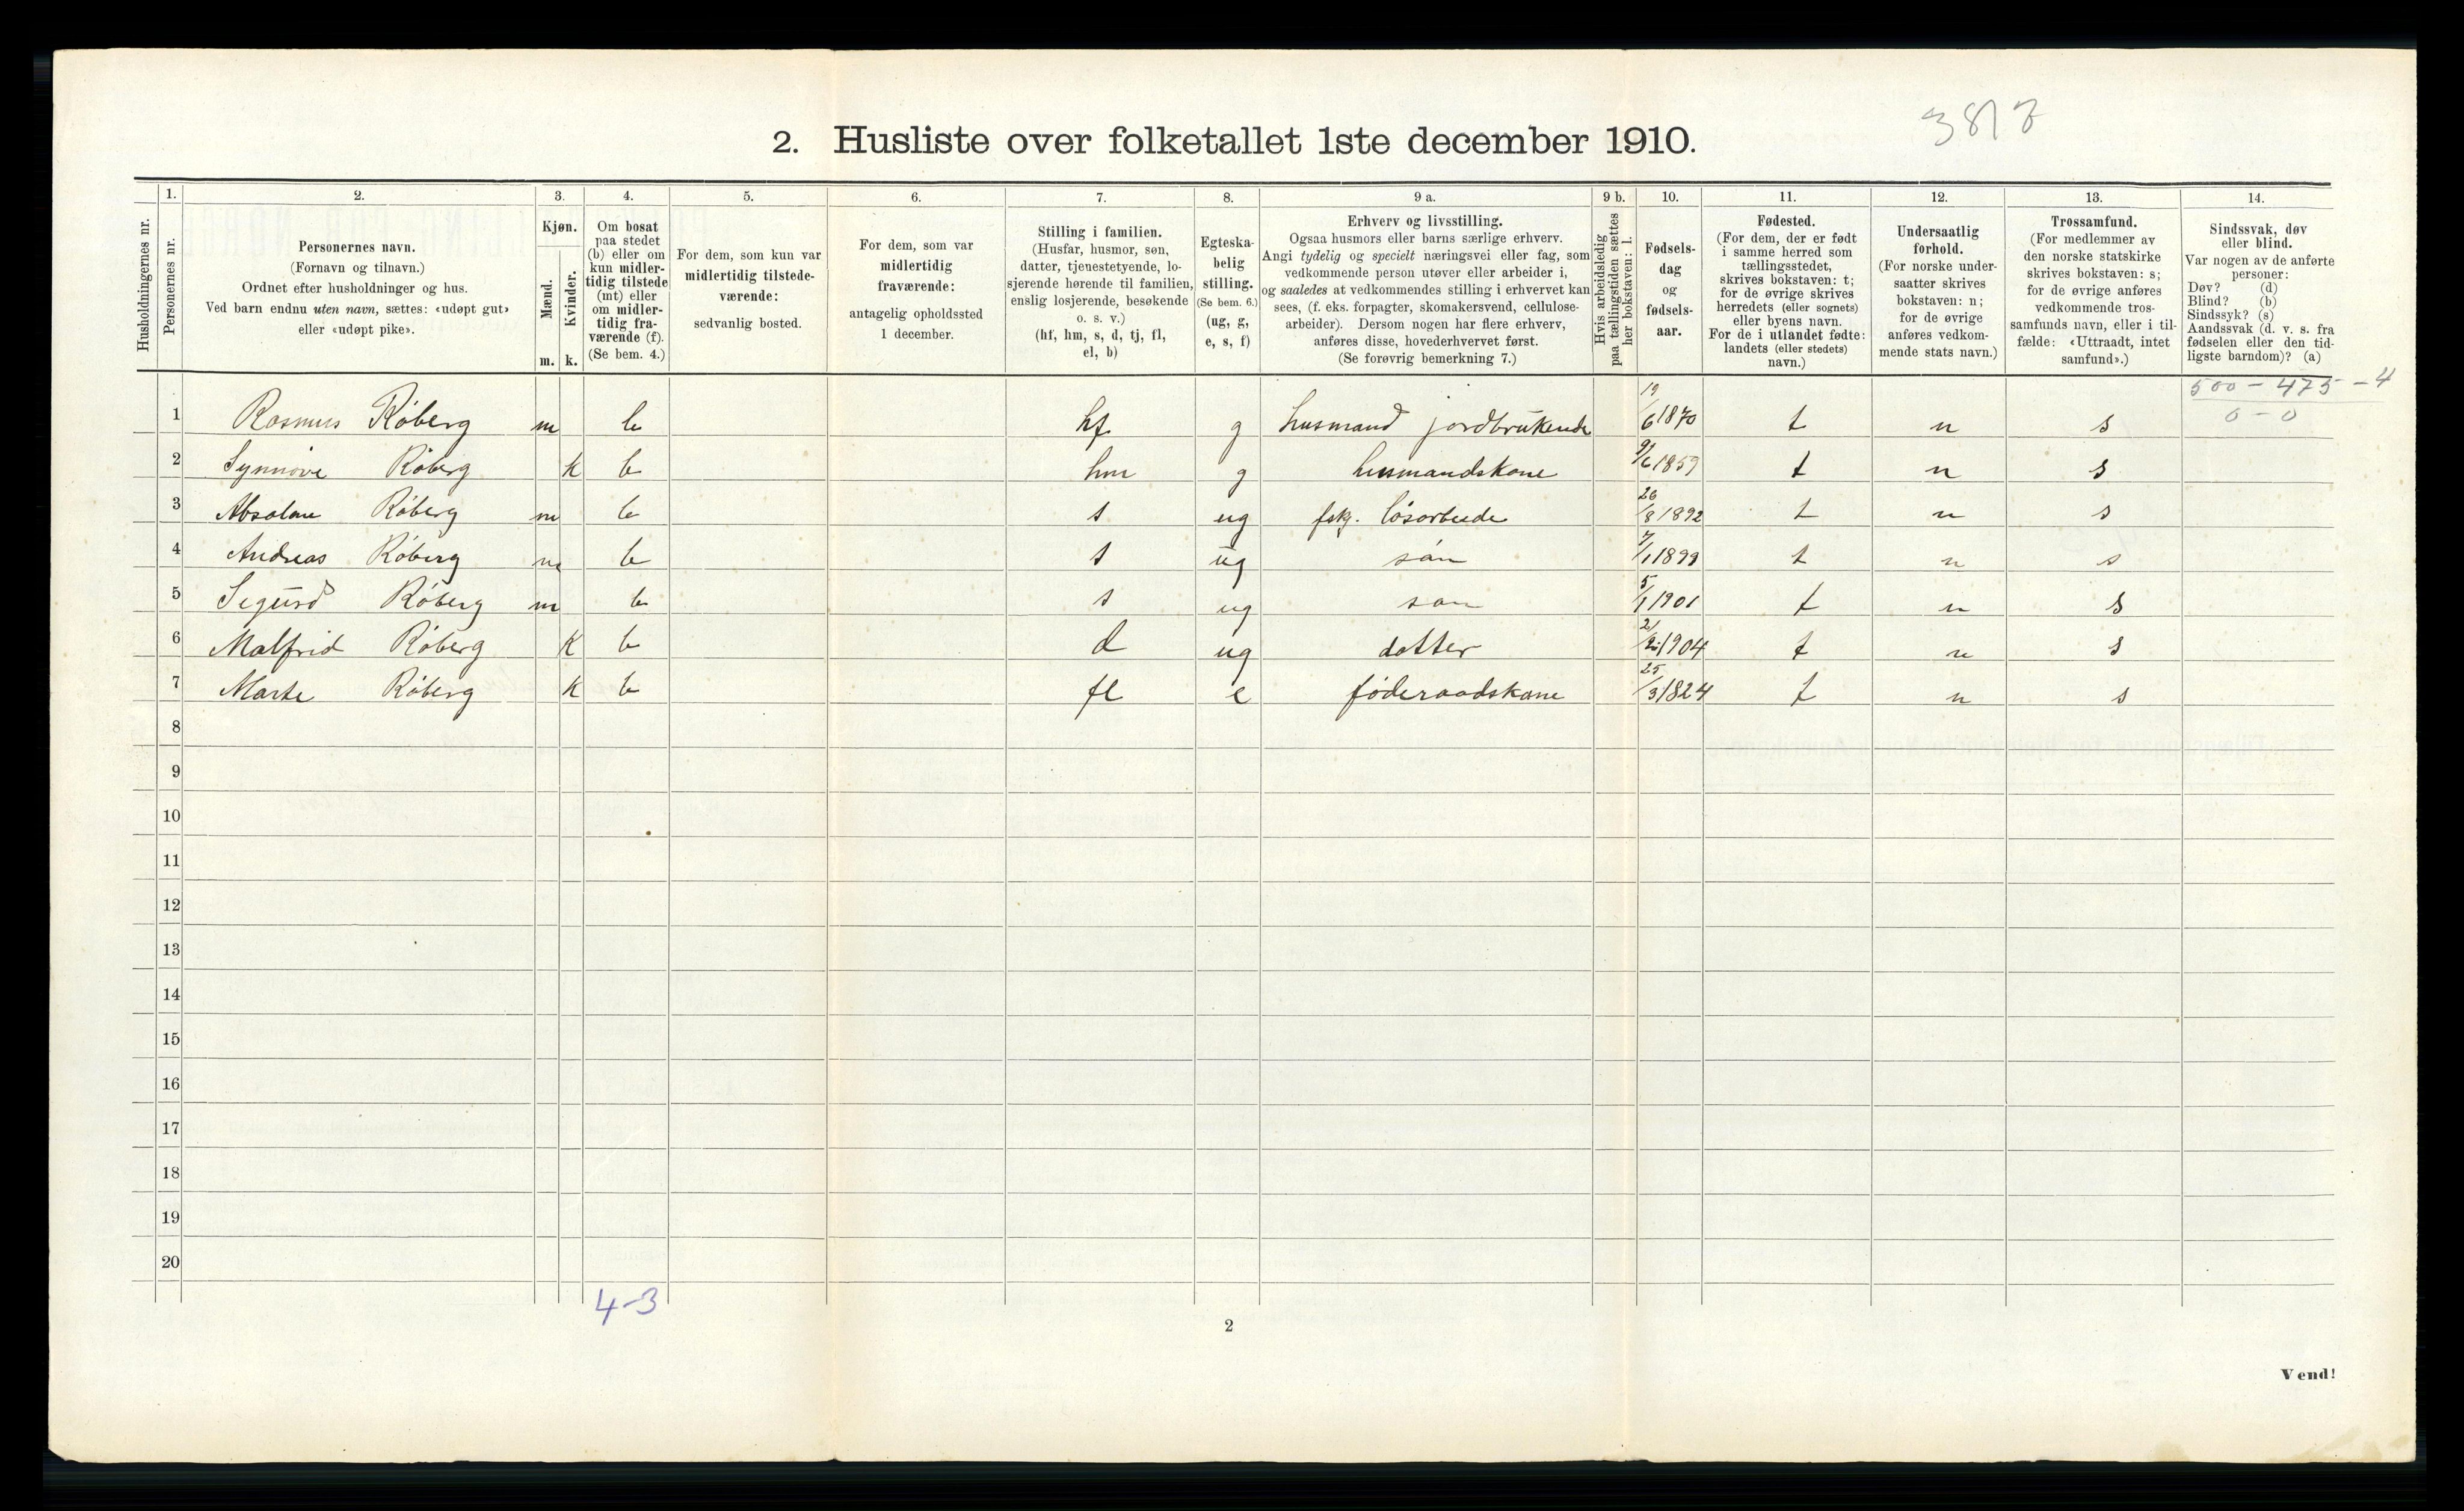 3817
2. Husliste over folketallet 1ste december 1910.
Husholdningernes nr.
1.
Personernes nr.
2.
Personernes navn.
(Fornavn og tilnavn.)
Ordnet efter husholdninger og hus.
Ved barn endnu uten navn, sættes: «udøpt gut»
eller «udøpt pike».
3.
Kjøn.
Mænd.
Kvinder.
m. k.
4.
Om bosat
paa stedet
(b) eller om
kun midler-
tidig tilstede
(mt) eller
om midler-
tidig fra-
værende (f).
(Se bem. 4.)
5.
For dem, som kun var
midlertidig tilstede-
værende:
sedvanlig bosted.
6.
For dem, som var
midlertidig
fraværende:
antagelig opholdssted
1 december.
7.
Stilling i familien.
(Husfar, husmor, søn,
datter, tjenestetyende, lo-
sjerende hørende til familien,
enslig losjerende, besøkende
o. s. v.)
(hf, hm, s, d, tj, fl,
el, b)
8.
Egteska-
belig
stilling.
(Se bem. 6.)
(ug, g,
e, s, f)
9 a.
Erhverv og livsstilling.
Ogsaa husmors eller barns særlige erhverv.
Angi tydelig og specielt næringsvei eller fag, som
vedkommende person utøver eller arbeider i,
og saaledes at vedkommendes stilling i erhvervet kan
sees, (f. eks. forpagter, skomakersvend, cellulose-
arbeider). Dersom nogen har flere erhverv,
anføres disse, hovederhvervet først.
(Se forøvrig bemerkning 7.)
9 b.
Hvis arbeidsledig
paa tællingstiden sættes
her bokstaven: l.
10.
Fødsels-
dag
og
fødsels-
aar.
11.
Fødested.
(For dem, der er født
i samme herred som
tællingsstedet,
skrives bokstaven: t;
for de øvrige skrives
herredets (eller sognets)
eller byens navn.
For de i utlandet fødte:
landets (eller stedets)
navn.)
12.
Undersaatlig
forhold.
(For norske under-
saatter skrives
bokstaven: n;
for de øvrige
anføres vedkom-
mende stats navn.)
13.
Trossamfund.
(For medlemmer av
den norske statskirke
skrives bokstaven: s;
for de øvrige anføres
vedkommende tros-
samfunds navn, eller i til-
fælde: «Uttraadt, intet
samfund».)
14.
Sindssvak, døv
eller blind.
Var nogen av de anførte
personer:
Døv? (d)
Blind? (b)
Sindssyk? (s)
Aandssvak (d. v. s. fra
fødselen eller den tid-
ligste barndom)? (a)
500 - 475 - 4
0 - 0
1 Rasmus Røberg m b hf g husmand jordbrukende 19/6 1870 t n s
2 Synnøve Røberg k b hm g husmandskone 9/6 1859 t n s
3 Absalon Røberg m b s ug fskj. løsarbeide 26/8 1892 t n s
4 Andreas Røberg m b s ug søn 7/1 1899 t n s
5 Sigurd Røberg m b s ug søn 5/1 1901 t n s
6 Malfrid Røberg k b d ug dotter 21/2 1904 t n s
7 Marte Røberg k b fl e føderaadskone 25/3 1824 t n s
8
9
10
11
12
13
14
15
16
17
18
19
20
4-3
2
Vend!